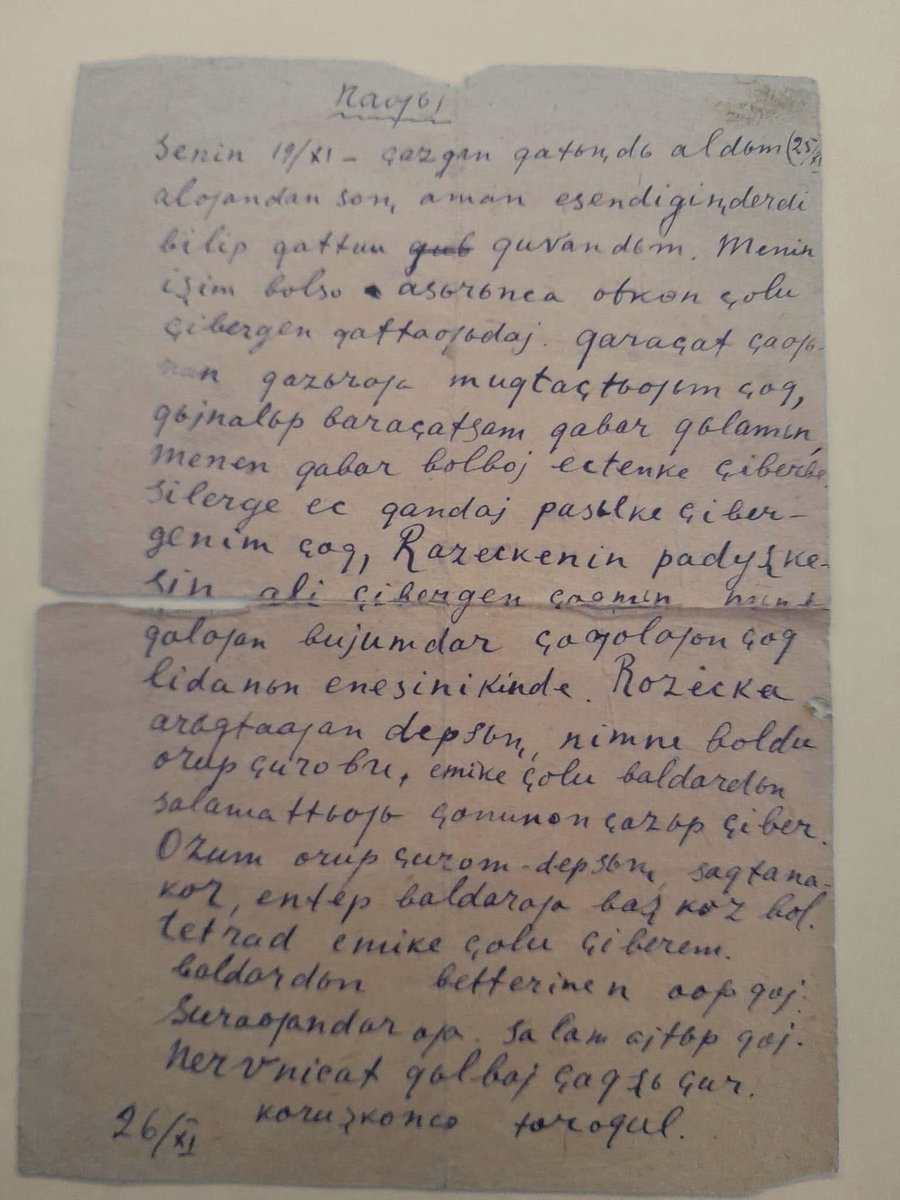 Naƣьj
Senin 19/XI – çazgan qatьꞑdь aldьm (25/XI
alƣandan soꞑ, aman esendigiꞑderdi
bilip qattuu quvandьm. Menin
işim bolso asьrьnca ɵtkɵn çolu
çibergen qattaƣьdaj. Qaraçat çaƣь-
nan qazьrƣь muqtaçtьƣьm çoq,
qьjnalьp baraçatsam qabar qьlamьn,
menen qabar bolboj ectenke çiberbe
silerge ec qandaj pasьlke çiber-
genim çoq, Rozeckenin paduşke-
sin ali çibergen çoqmun
qalƣan bujumdar çoƣolƣon çoq
Lidanьn enesinikinde. Rozecka
arьqtaƣan depsiꞑ, nimne boldu
orup çurɵbu, emike çolu baldardьn
salamattьƣь çɵnundɵn çazьp çiber.
Ɵzum orup çurɵm – depsiꞑ, saqtana
kɵr, entep baldarƣa baş kɵz bol.
tetrad emike çolu çiberem.
baldardьn betterinen ɵɵp qoj.
Suraƣandarƣa salam ajtьp qoj.
Nervnicat qьlbaj çaqşь çur.
26/XI kɵruşkɵncɵ Tɵrɵqul.